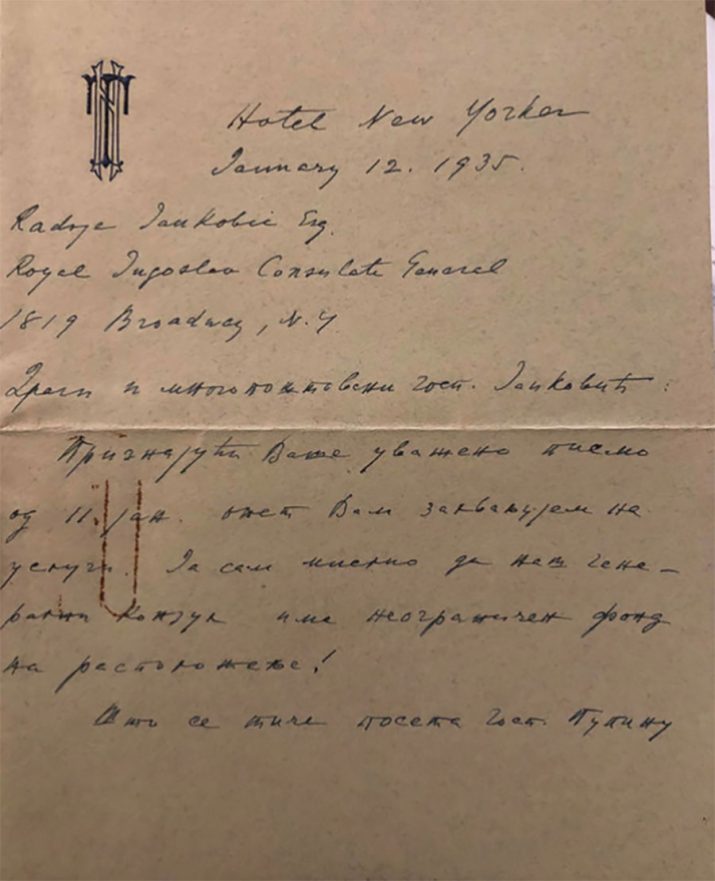 Hotel New Yorker
January 12. 1935.
Radoje Jankovic Esq.
Royal Jugoslav Consulate General
1819 Broadway, N.Y
Драги и многопоштовани Госп. Јанковић:
Признајући Ваше уважено писмо
од 11. јан. опет Вам захваљујем на
услуги. Ја сам мислио да наш гене-
рални Конзул има неограничен фонд
на расположење!
Што се тиче посета Госп. Пупину